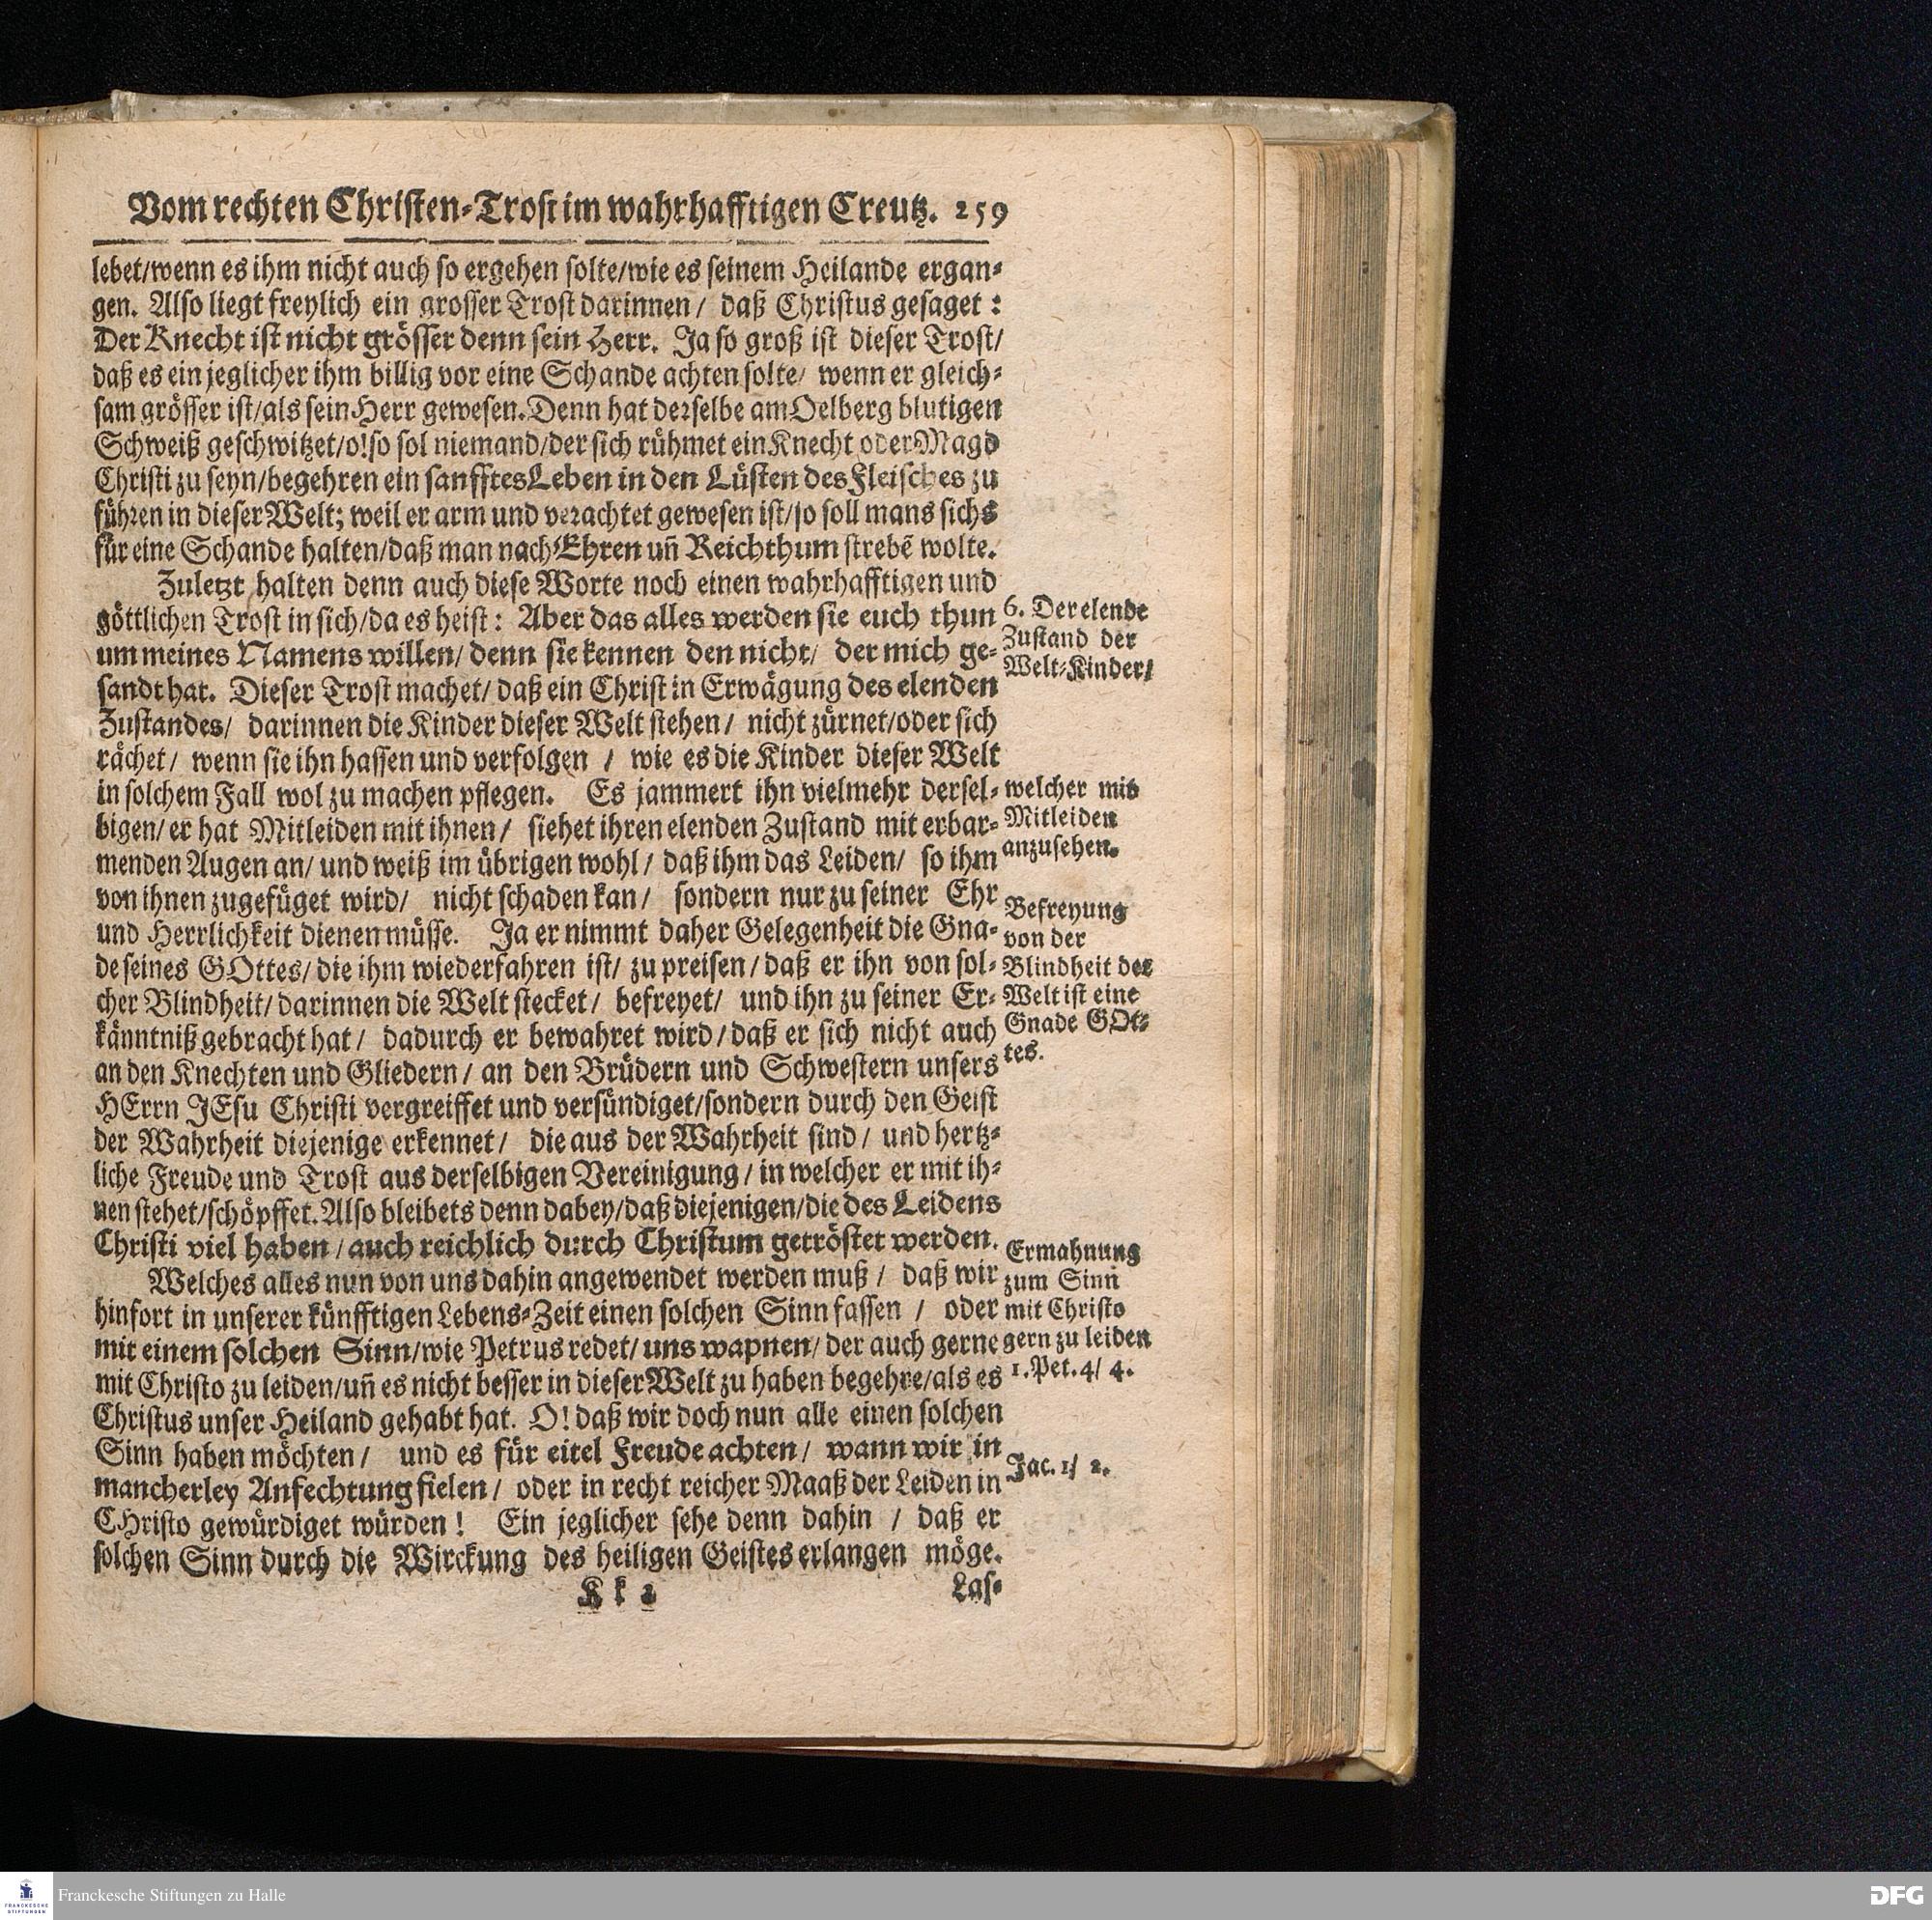 Vom rechten Christen-Trost im wahrhafftigen Creutz. 259
lebet/wenn es ihm nicht auch so ergehen solte/wie es seinem Heilande ergan-
gen. Also liegt freylich ein grosser Trost darinnen/ daß Christus gesaget:
Der Knecht ist nicht grösser denn sein Herr. Ja so groß ist dieser Trost/
daß es ein jeglicher ihm billig vor eine Schande achten solte/ wenn er gleich-
sam grösser ist/als sein Herr gewesen. Denn hat derselbe am Oelberg blutigen
Schweiß geschwitzet/o! so sol niemand/der sich rühmet ein Knecht oder Magd
Christi zu seyn/begehren ein sanfftes Leben in den Lüsten des Fleisches zu
führen in dieser Welt; weil er arm und verachtet gewesen ist/so soll mans sichs
für eine Schande halten/daß man nach Ehren uñ Reichthum strebẽ wolte.
Zuletzt halten denn auch diese Worte noch einen wahrhafftigen und
göttlichen Trost in sich/da es heist: Aber das alles werden sie euch thun
um meines Namens willen/ denn sie kennen den nicht/ der mich ge-
sandt hat. Dieser Trost machet/ daß ein Christ in Erwägung des elenden
Zustandes/ darinnen die Kinder dieser Welt stehen/ nicht zürnet/oder sich
rächet/ wenn sie ihn hassen und verfolgen / wie es die Kinder dieser Welt
in solchem Fall wol zu machen pflegen. Es jammert ihn vielmehr dersel-
bigen/ er hat Mitleiden mit ihnen/ siehet ihren elenden Zustand mit erbar-
menden Augen an/ und weiß im übrigen wohl/ daß ihm das Leiden/ so ihm
von ihnen zugefüget wird/ nicht schaden kan/ sondern nur zu seiner Ehr
und Herrlichkeit dienen müsse. Ja er nimmt daher Gelegenheit die Gna-
de seines GOttes/ die ihm wiederfahren ist/ zu preisen/ daß er ihn von sol-
cher Blindheit/ darinnen die Welt stecket/ befreyet/ und ihn zu seiner Er-
känntniß gebracht hat/ dadurch er bewahret wird/ daß er sich nicht auch
an den Knechten und Gliedern/ an den Brüdern und Schwestern unsers
HErrn JEsu Christi vergreiffet und versündiget/sondern durch den Geist
der Wahrheit diejenige erkennet/ die aus der Wahrheit sind/ und hertz-
liche Freude und Trost aus derselbigen Vereinigung/ in welcher er mit ih-
nen stehet/schöpffet. Also bleibets denn dabey/daß diejenigen/die des Leidens
Christi viel haben/ auch reichlich durch Christum getröstet werden.
Welches alles nun von uns dahin angewendet werden muß/ daß wir
hinfort in unserer künfftigen Lebens-Zeit einen solchen Sinn fassen / oder
mit einem solchen Sinn/wie Petrus redet/ uns wapnen/ der auch gerne
mit Christo zu leiden/uñ es nicht besser in dieser Welt zu haben begehre/als es
Christus unser Heiland gehabt hat. O! daß wir doch nun alle einen solchen
Sinn haben möchten/ und es für eitel Freude achten/ wann wir in
mancherley Anfechtung fielen/ oder in recht reicher Maaß der Leiden in
CHristo gewürdiget würden! Ein jeglicher sehe denn dahin / daß er
solchen Sinn durch die Wirckung des heiligen Geistes erlangen möge.
Kk 2 Las-
6. Der elende
Zustand der
Welt-Kinder/
welcher mit
Mitleiden
anzusehen.
Befreyung
von der
Blindheit der
Welt ist eine
Gnade GOt-
tes.
Ermahnung
zum Sinn
mit Christo
gern zu leiden
1. Pet. 4/ 4.
Jac. 1/ 2.
Franckesche Stiftungen zu Halle
FRANCKESCHE
STIFTUNGEN
DFG